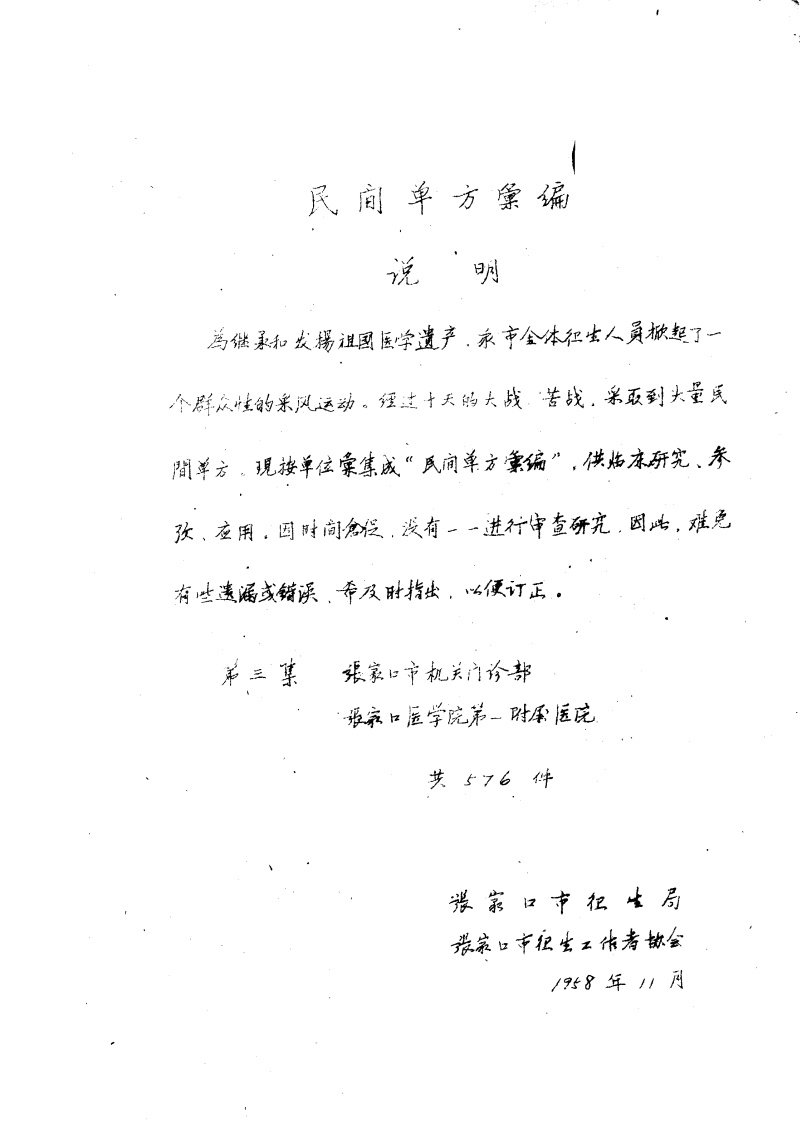 民间单方彙编
说 明
為继承和发揚祖國医学遺产，我市全体衛生人员掀起了一
个群众性的采风运动。经过十天的大战、苦战，采取到大量民
間单方。现按单位彙集成“民间单方彙编”，供临床研究、参
攷、应用，因时间倉促，没有一一进行审查研究，因此，难免
有些遗漏或错误，希及时指出，以便订正。
第三集 張家口市机关门诊部
張家口医学院第一附属医院
共 576 件
張家口市衛生局
張家口市衛生工作者协会
1958年11月